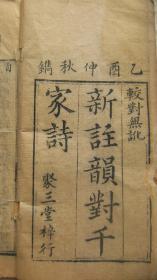 乙酉仲秋鐫
較對無訛
新註韻對千
家詩
聚三堂梓行